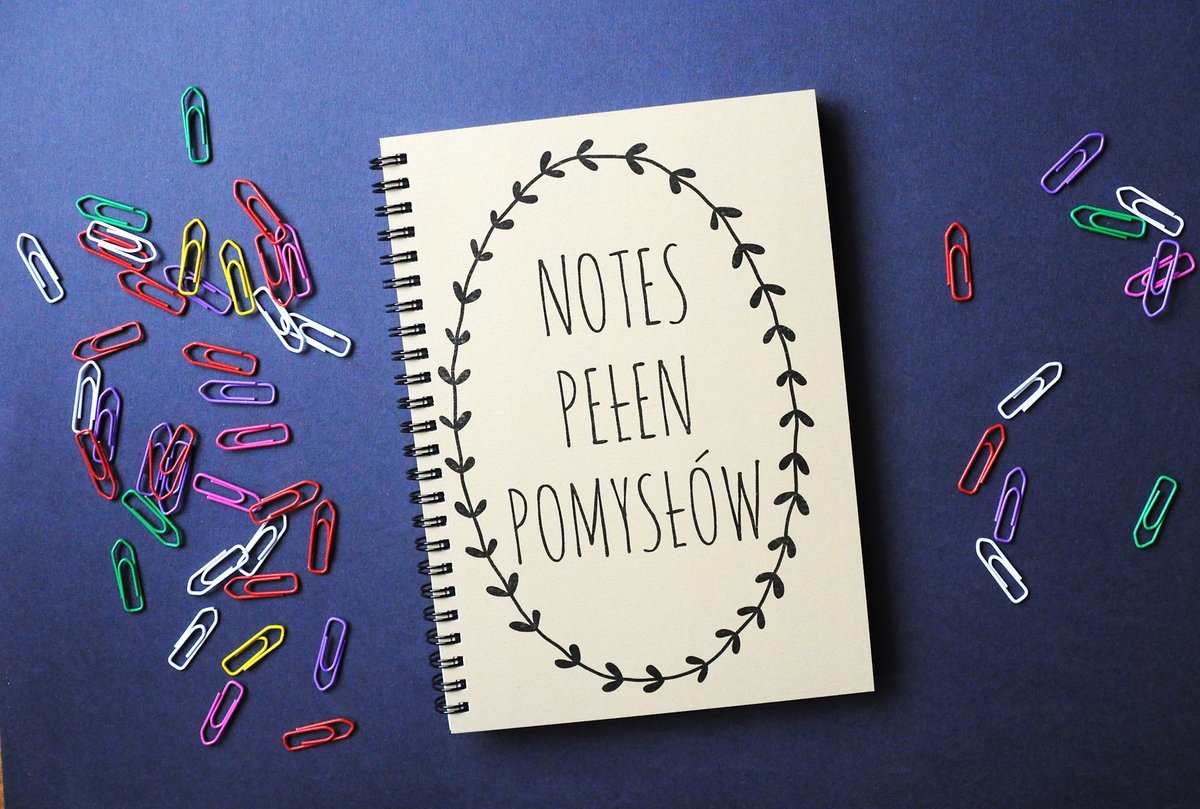 NOTES
PEŁEN
POMYSŁÓW